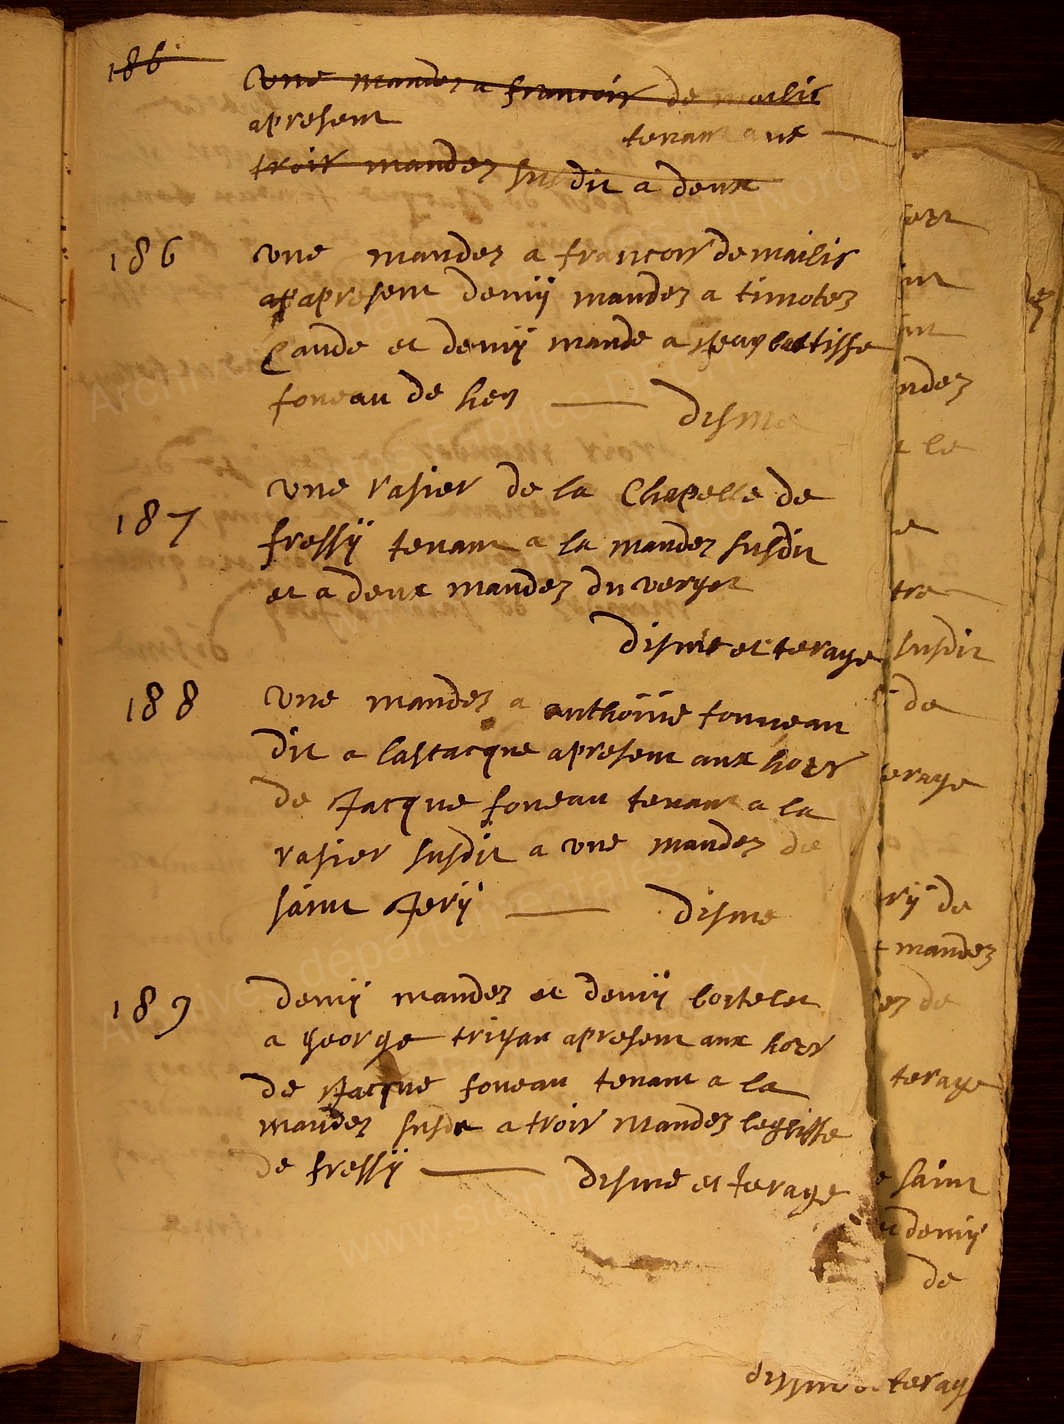 186
une mandez a francoir de mailir
apresent tenant aux
troir mandez susdit a deux
186
une mandez a francoir demailir
apapresent demÿ mandez a timotez
Caude et demÿ mande a Jean battisse
foneau de hen disme
187
une rasier de la Chapelle de
fressÿ tenant a la mandez susdit
et a deux mandez du verger
disme et terage
188
une mandez a anthoine fonneau
dit a lastacque apresent aux hoir
de Jacque foneau tenant a la
rasier susdit a une mandez de
saint Jerÿ disme
189
demÿ mandez et demÿ boitelet
a george trigau apresent aux hoir
de Jacque foneau tenant a la
mandez susdit a troir mandez leglisse
de fressÿ disme et terage
ndez
le
e
tre
susdit
de
erage
rÿ de
mandez
de
terage
saint
demÿ
de